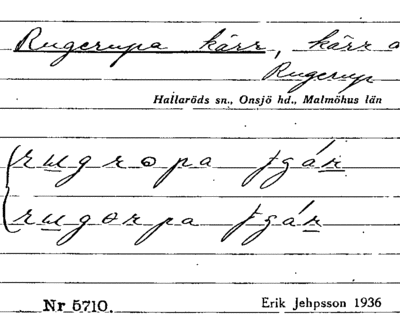 Rugerupa kärr, kärr a
Rugerup
Hallaröds sn., Onsjö hd., Malmöhus län
rugropa tgár
rugərpa tgár
Nr 5710. Erik Jehpsson 1936